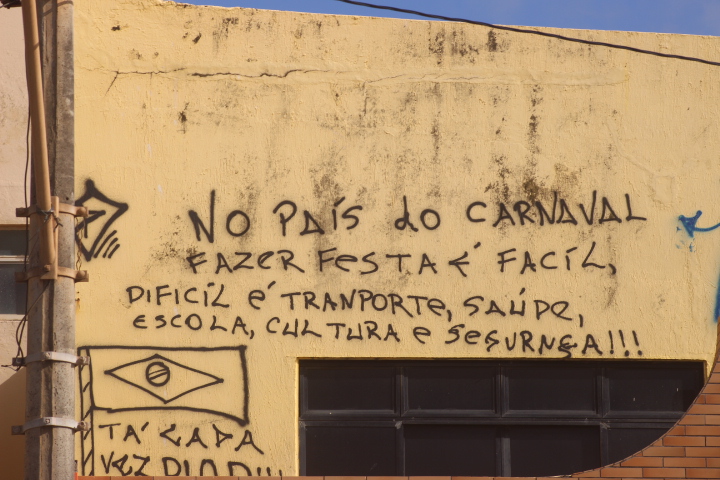 NO PAÍS do CARNAVAL
FAZER FESTA É FACÍL,
DIFICÍL É TRANPORTE, SAÚDE,
ESCOLA, CULTURA e SEGURNÇA!!!
TA' CADA
VEZ PIOR!!!